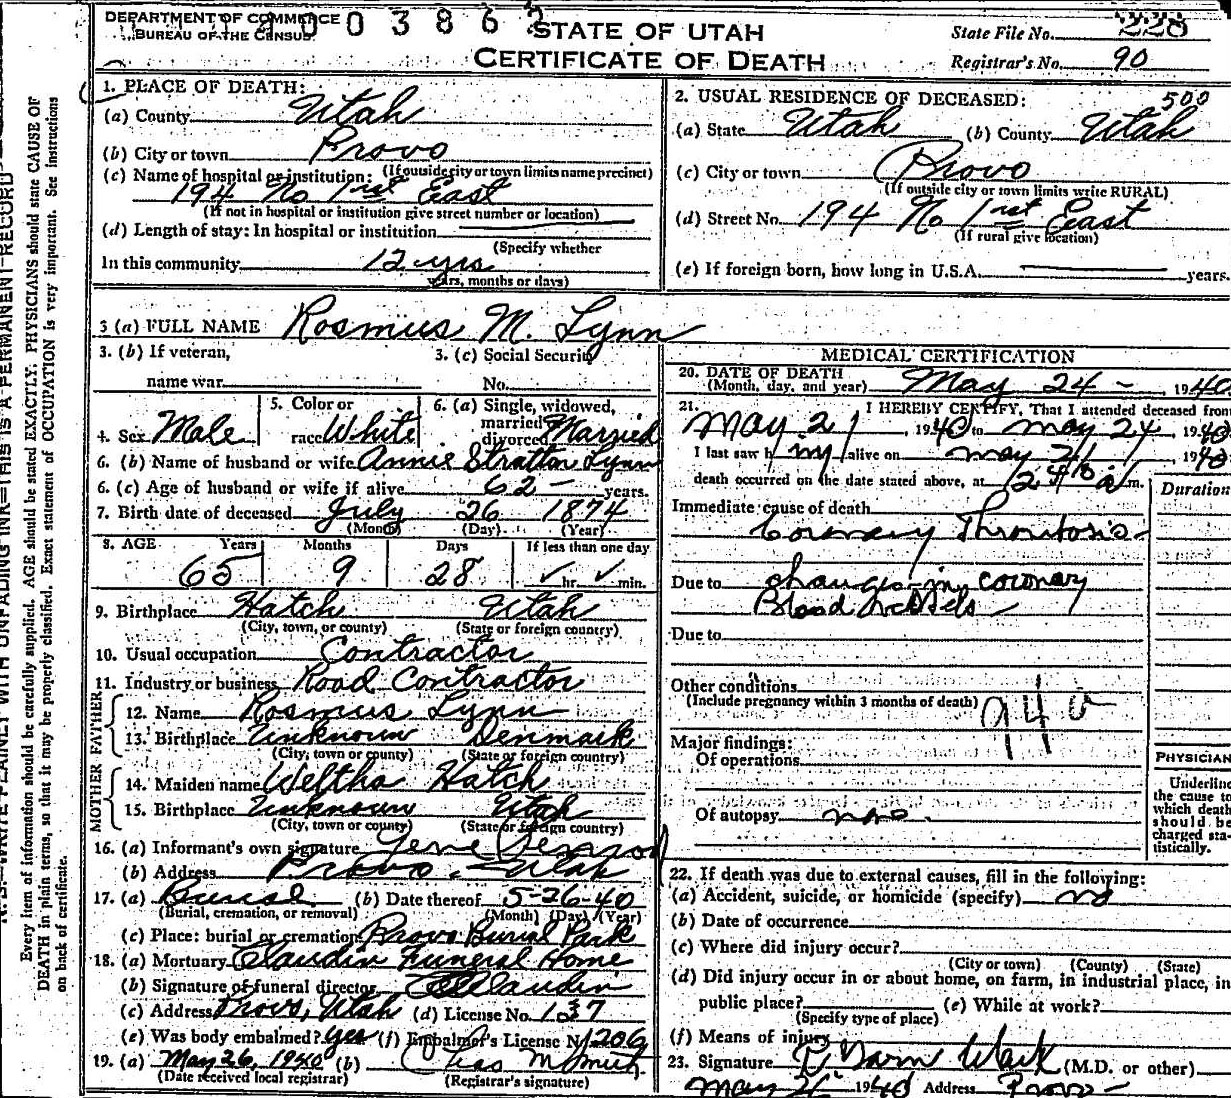 DEPARTMENT OF COMMERCE
BUREAU OF THE CENSUS
0 0 3 8 6
STATE OF UTAH
CERTIFICATE OF DEATH
State File No. 228
Registrar's No. 90
Every item of information should be carefully supplied. AGE should be stated EXACTLY. PHYSICIANS should state CAUSE OF
DEATH in plain terms, so that it may be properly classified. Exact statement of OCCUPATION is very important. See instructions
on back of certificate.
1. PLACE OF DEATH:
(a) County Utah
(b) City or town Provo
(If outside city or town limits name precinct)
(c) Name of hospital or institution:
194 No 1rst East
(If not in hospital or institution give street number or location)
(d) Length of stay: In hospital or institution
(Specify whether
In this community 12 yrs
years, months or days)
2. USUAL RESIDENCE OF DECEASED: 500
(a) State Utah (b) County Utah
(c) City or town Provo
(If outside city or town limits write RURAL)
(d) Street No. 194 No 1rst East
(If rural give location)
(e) If foreign born, how long in U.S.A. years.
3 (a) FULL NAME Rosmus M. Lynn
3. (b) If veteran,
name war
3. (c) Social Security
No.
4. Sex Male
5. Color or
race White
6. (a) Single, widowed,
married
divorced Married
6. (b) Name of husband or wife Annie Stratton Lynn
6. (c) Age of husband or wife if alive 62 years.
7. Birth date of deceased July 26 1874
(Month) (Day) (Year)
8. AGE Years Months Days If less than one day
65 9 28 hr. min.
9. Birthplace Hatch Utah
(City, town, or county) (State or foreign country)
10. Usual occupation Contractor
11. Industry or business Road Contractor
FATHER
12. Name Rosmus Lynn
13. Birthplace Unknown Denmark
(City, town or county) (State or foreign country)
MOTHER
14. Maiden name Weltha Hatch
15. Birthplace Unknown Utah
(City, town or county) (State or foreign country)
16. (a) Informant's own signature Gene
(b) Address Provo, Utah
17. (a) Burial (b) Date thereof 5-26-40
(Burial, cremation, or removal) (Month) (Day) (Year)
(c) Place: burial or cremation Provo Burial Park
18. (a) Mortuary Claudin Funeral Home
(b) Signature of funeral director Claudin
(c) Address Provo, Utah (d) License No. 137
(e) Was body embalmed? Yes (f) Embalmer's License No. 1206
19. (a) May 26, 1940 (b)
(Date received local registrar) (Registrar's signature)
MEDICAL CERTIFICATION
20. DATE OF DEATH
(Month, day, and year) May 24 - , 1940
21. I HEREBY CERTIFY, That I attended deceased from
May 21, 1940 to May 24, 1940
I last saw h im alive on May 1940
death occurred on the date stated above, at m.
Duration
Immediate cause of death
Coronary Thrombosis
Due to changes in coronary
Blood Vessels
Due to
Other conditions
(Include pregnancy within 3 months of death)
94 a
Major findings:
Of operations
Of autopsy none.
PHYSICIAN
Underline
the cause to
which death
should be
charged sta-
tistically.
22. If death was due to external causes, fill in the following:
(a) Accident, suicide, or homicide (specify) no
(b) Date of occurrence
(c) Where did injury occur?
(City or town) (County) (State)
(d) Did injury occur in or about home, on farm, in industrial place, in
public place? (e) While at work?
(Specify type of place)
(f) Means of injury
23. Signature Clark (M.D. or other)
May 1940 Address Provo